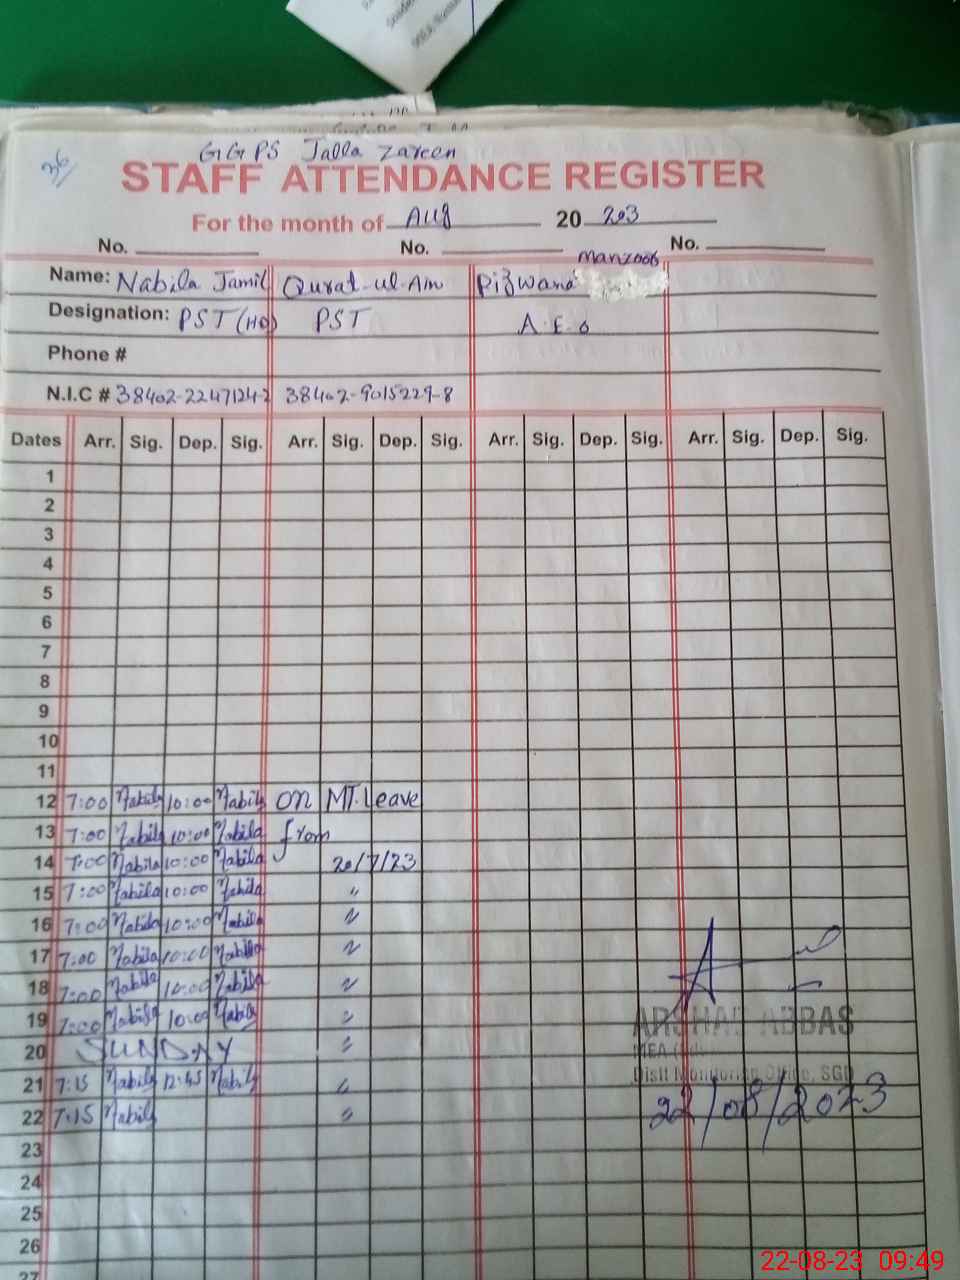 36
GGPS Jalla Zareen
STAFF ATTENDANCE REGISTER
For the month of Aug 20 203
No. No. No.
Name: Nabila Jamil Qurat-ul-Ain Rizwana Manzoor
Designation: PST (HD) PST A.E.O
Phone #
N.I.C # 38402-2247124-2 38402-9015229-8
Dates Arr. Sig. Dep. Sig. Arr. Sig. Dep. Sig. Arr. Sig. Dep. Sig. Arr. Sig. Dep. Sig.
1
2
3
4
5
6
7
8
9
10
11
12 7:00 Nabila 10:00 Nabila on MT. Leave
13 7:00 Nabila 10:00 Nabila from
14 7:00 Nabila 10:00 Nabila 20/7/23
15 7:00 Nabila 10:00 Nabila "
16 7:00 Nabila 10:00 Nabila "
17 7:00 Nabila 10:00 Nabila "
18 7:00 Nabila 10:00 Nabila "
19 7:00 Nabila 10:00 Nabila "
ARSHAD ABBAS
20 SUNDAY "
MEA
21 7:15 Nabila 12:45 Nabila "
Distt Monitoring Office, SGD
22 7:15 Nabila "
22/08/2023
23
24
25
26
27
22-08-23 09:49